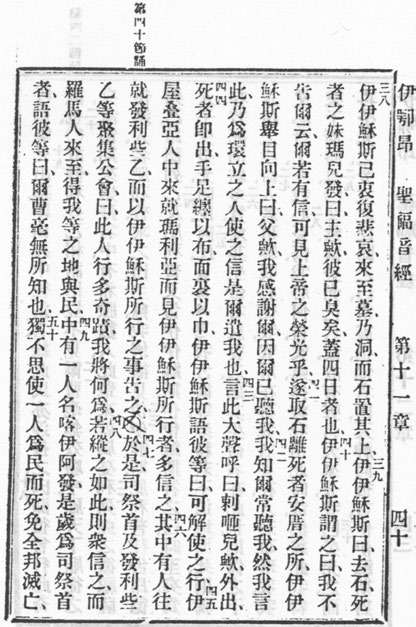 伊鄂昂 聖福音經 第十一章 四十
三八伊伊穌斯己衷復悲哀來至墓乃洞而石置其上、三九伊伊穌斯曰去石死
者之妹瑪兒發曰主歟彼已臭矣蓋四日者也、四十伊伊穌斯謂之曰我不
吿爾云爾若有信可見上帝之榮光乎、四一遂取石離死者安厝之所伊伊
穌斯舉目向上曰父歟我感謝爾因爾已聽我、四二我知爾常聽我然我言
此乃爲環立之人使之信是爾遣我也、四三言此大聲呼曰剌咂兒歟外出、
四四死者卽出手足纏以布而裹以巾伊伊穌斯語彼等曰可解使之行、四五伊
屋叠亞人中來就瑪利亞而見伊伊穌斯所行者多信之、四六其中有人往
就發利些乙而以伊伊穌斯所行之事吿之、四七於是司祭首及發利些
乙等聚集公會曰此人行多奇蹟我將何爲、四八若縱之如此則衆信之而
羅馬人來至得我等之地與民、四九中有一人名喀伊阿發是歲爲司祭首
者語彼等曰爾曹毫無所知也、五十獨不思使一人爲民而死免全邦滅亡、
第四十節誦